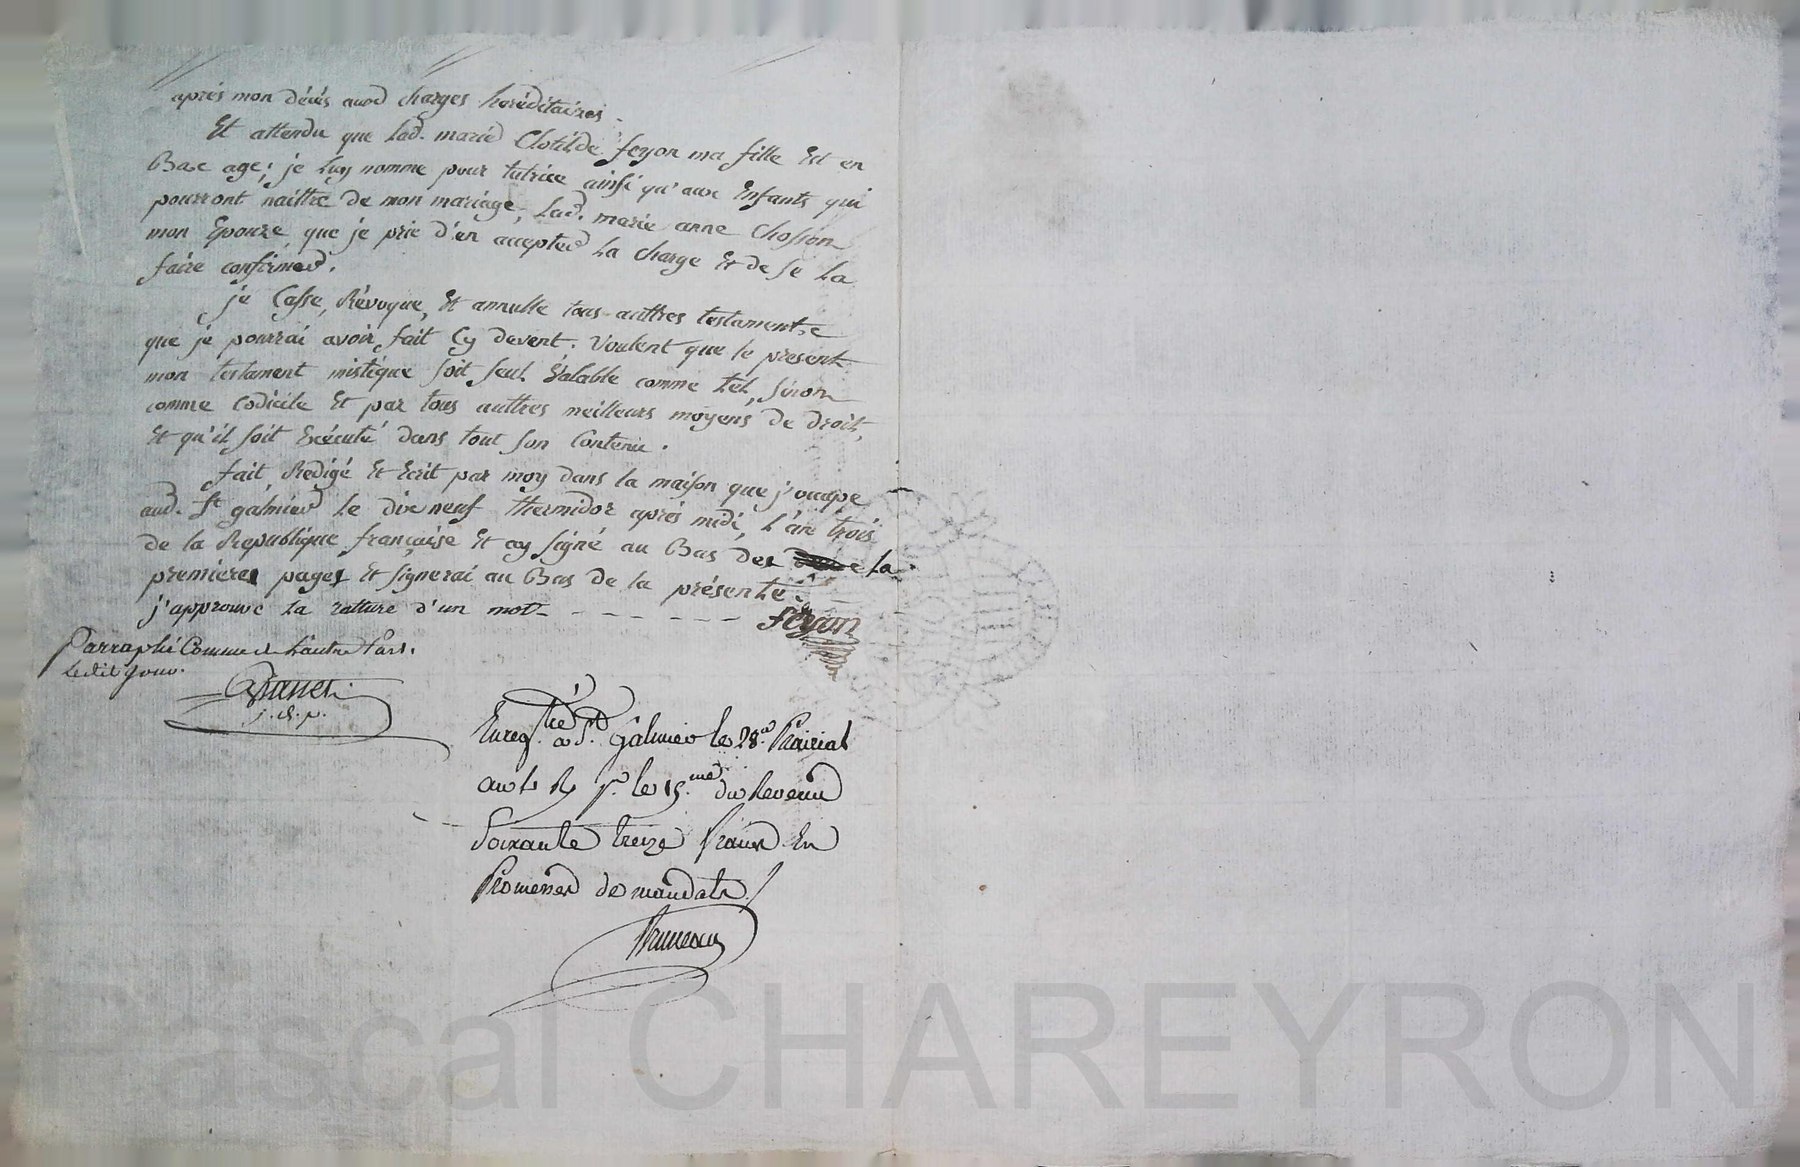 après mon décès aux charges héréditaires.
Et attendu que lad. marie Clotilde feyon ma fille Est en
Bax age; je luy nomme pour tutrice ainsi qu'aux Enfants qui
pourront naittre de mon mariage, lad. marie anne Chosson
mon Epouze, que je prie d'en accepter la charge Et de se la
faire confirmer.
je Casse, Révoque, Et annulle tous auttres testaments
que je pourrai avoir fait Cy devent. Voulent que le present
mon testament mistique soit seul Valable comme tel, sinon
comme Codicile Et par tous auttres meilleurs moyens de droit,
Et qu'il soit Exécuté dans tout son Contenu.
fait, Redigé Et Ecrit par moy dans la maison que j'occupe
aud. St galmier le dix neuf thermidor après midi, l'an trois
de la Republique française Et ay signé au Bas des la
premieres pages Et signerai au Bas de la présente.
j'approuve la ratture d'un mot - - - - - - - feyon
Parraphé Comme de L'autre Part.
Ledit jour.
j. d. p.
Enregtré a St. galmier le 28e. Prairial
an 4 R le 15.me du Revenu
Soixante treize francs En
Promesses de mandats
Pascal CHAREYRON